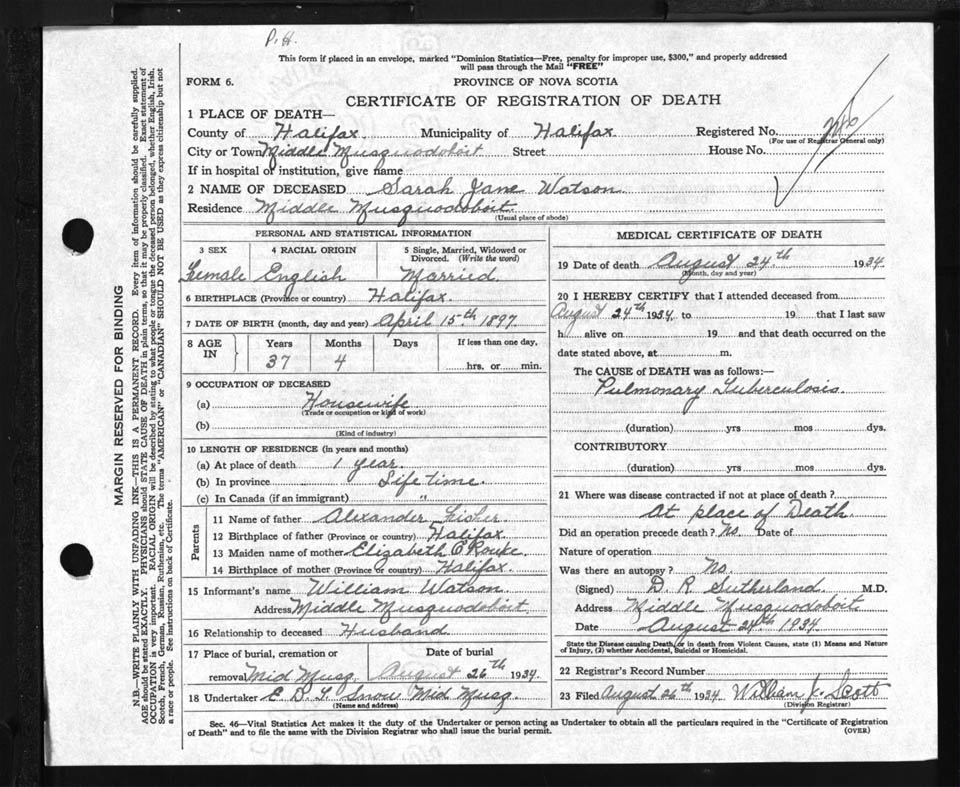 P.H.
This form if placed in an envelope, marked "Dominion Statistics—Free, penalty for improper use, $300," and properly addressed
will pass through the Mail "FREE"
FORM 6.
PROVINCE OF NOVA SCOTIA
CERTIFICATE OF REGISTRATION OF DEATH
1 PLACE OF DEATH—
County of Halifax Municipality of Halifax Registered No.
(For use of Registrar General only)
City or Town Middle Musquodoboit Street House No.
If in hospital or institution, give name
2 NAME OF DECEASED Sarah Jane Watson
Residence Middle Musquodoboit
(Usual place of abode)
PERSONAL AND STATISTICAL INFORMATION
3 SEX 4 RACIAL ORIGIN 5 Single, Married, Widowed or
Divorced. (Write the word)
Female English Married
6 BIRTHPLACE (Province or country) Halifax.
7 DATE OF BIRTH (month, day and year) April 15th 1897
8 AGE IN Years Months Days If less than one day,
37 4 hrs. or min.
9 OCCUPATION OF DECEASED
(a) Housewife
(Trade or occupation or kind of work)
(b)
(Kind of industry)
10 LENGTH OF RESIDENCE (in years and months)
(a) At place of death 1 year.
(b) In province Life time.
(c) In Canada (if an immigrant) "
Parents
11 Name of father Alexander
12 Birthplace of father (Province or country) Halifax
13 Maiden name of mother Elizabeth
14 Birthplace of mother (Province or country) Halifax.
15 Informant's name William Watson
Address Middle Musquodoboit
16 Relationship to deceased Husband
17 Place of burial, cremation or Date of burial
removal Mid Musq. August 26th 1934
18 Undertaker Snow Mid Musq
(Name and address)
MEDICAL CERTIFICATE OF DEATH
19 Date of death August 24th 1934
(Month, day and year)
20 I HEREBY CERTIFY that I attended deceased from
August 24th 1934 to 19 that I last saw
h alive on 19 and that death occurred on the
date stated above, at m.
The CAUSE of DEATH was as follows:
Pulmonary Tuberculosis
(duration) yrs mos dys.
CONTRIBUTORY
(duration) yrs mos dys.
21 Where was disease contracted if not at place of death?
At place of Death
Did an operation precede death? No. Date of
Nature of operation
Was there an autopsy? No.
(Signed) D. R Sutherland M.D.
Address Middle Musquodoboit
Date August 24th 1934
State the Disease causing Death, or in death from Violent Causes, state (1) Means and Nature
of Injury, (2) whether Accidental, Suicidal or Homicidal.
22 Registrar's Record Number
23 Filed August 26th 1934 William J. Scott
(Division Registrar)
Sec. 46—Vital Statistics Act makes it the duty of the Undertaker or person acting as Undertaker to obtain all the particulars required in the "Certificate of Registration
of Death" and to file the same with the Division Registrar who shall issue the burial permit.
(OVER)
MARGIN RESERVED FOR BINDING
N.B.—WRITE PLAINLY WITH UNFADING INK—THIS IS A PERMANENT RECORD. Every item of information should be carefully supplied.
AGE should be stated EXACTLY. PHYSICIANS should STATE CAUSE OF DEATH in plain terms, so that it may be properly classified. Exact statement of
OCCUPATION is very important. RACIAL ORIGIN will be described by stating to what people or tongue the deceased person belonged, whether English, Irish,
Scotch, French, German, Russian, Ruthenian, etc. The terms "AMERICAN" or "CANADIAN" SHOULD NOT BE USED as they express citizenship but not
a race or people. See instructions on back of Certificate.